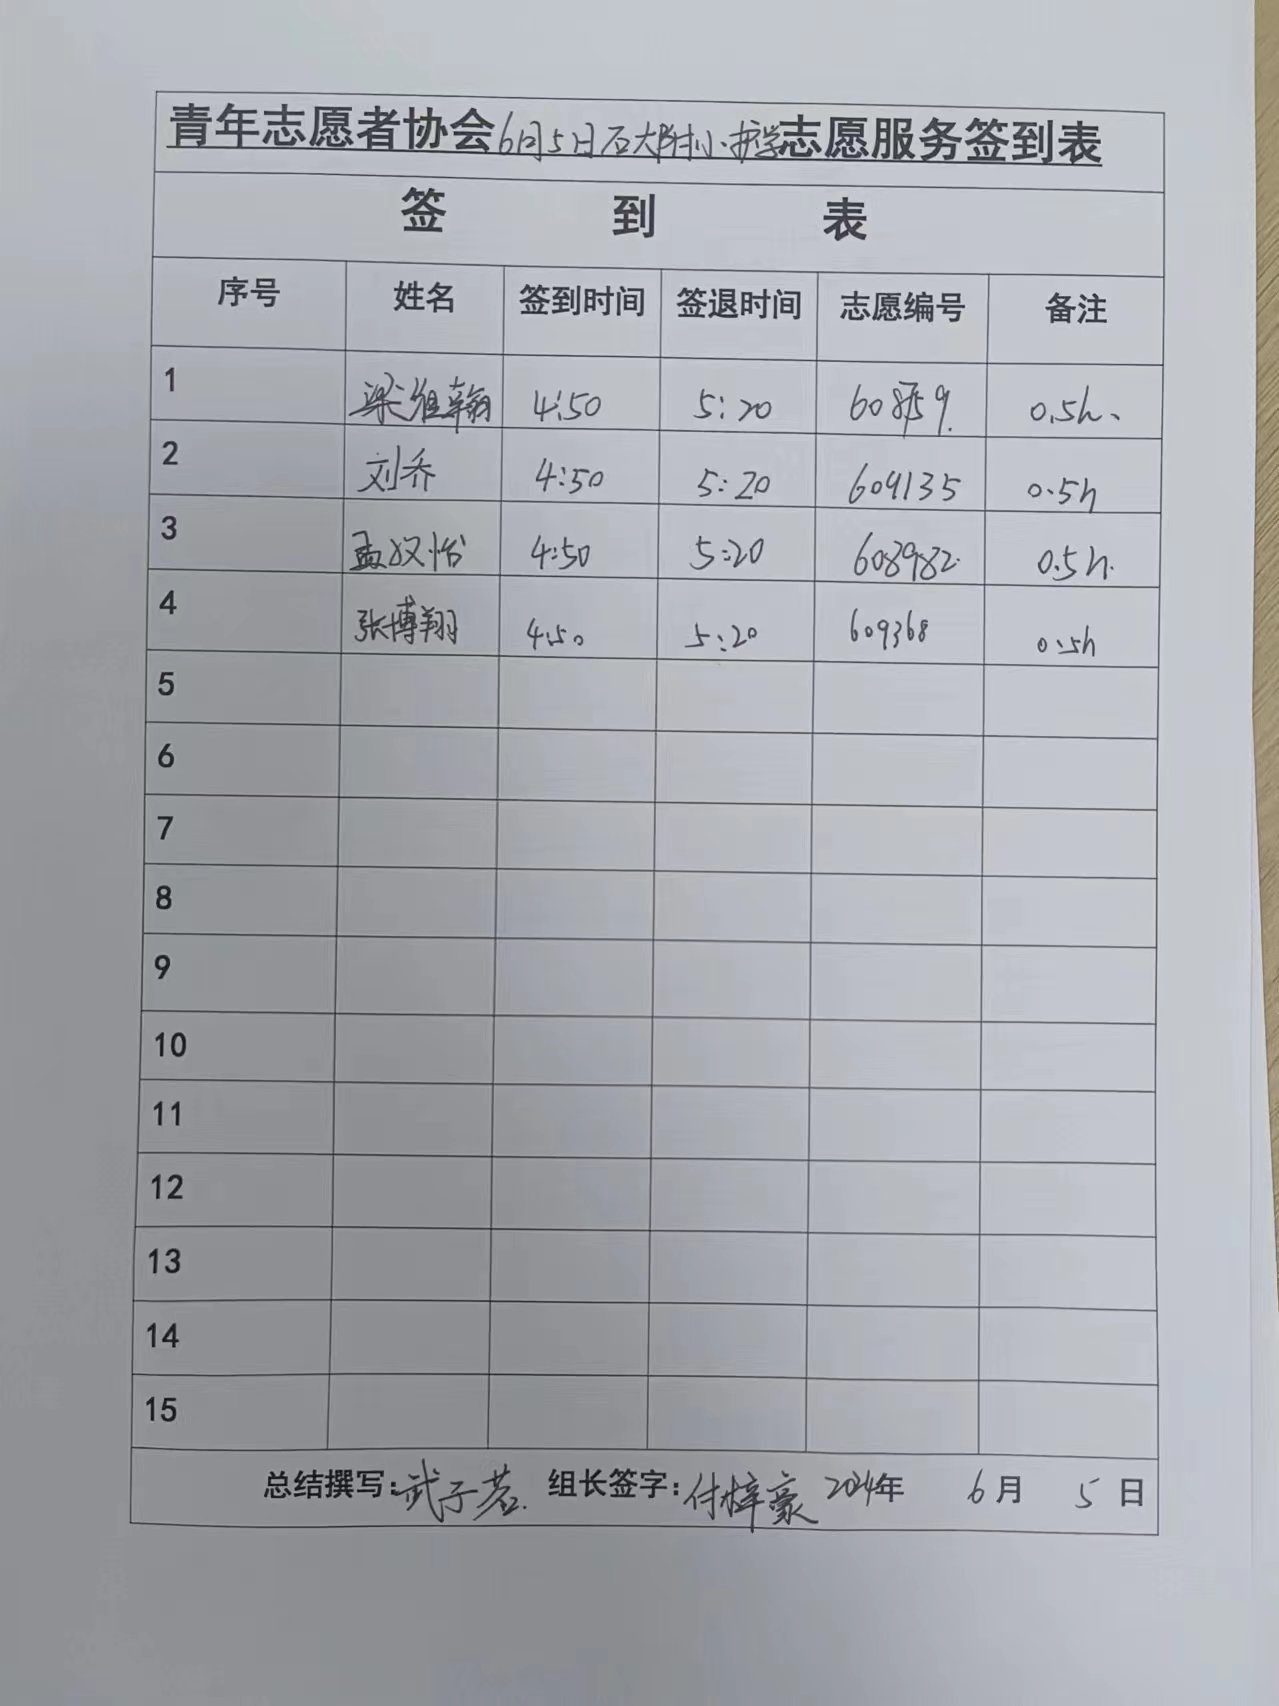 青年志愿者协会6月5日石大附小护学志愿服务签到表
签 到 表
序号 姓名 签到时间 签退时间 志愿编号 备注
1 梁维翰 4:50 5:20 608759. 0.5h、
2 刘乔 4:50 5:20 609135 0.5h
3 孟汉怡 4:50 5:20 608982. 0.5h.
4 张博翔 4:50 5:20 609368 0.5h
5
6
7
8
9
10
11
12
13
14
15
总结撰写:武子茗. 组长签字:付梓豪 2024年 6月 5日